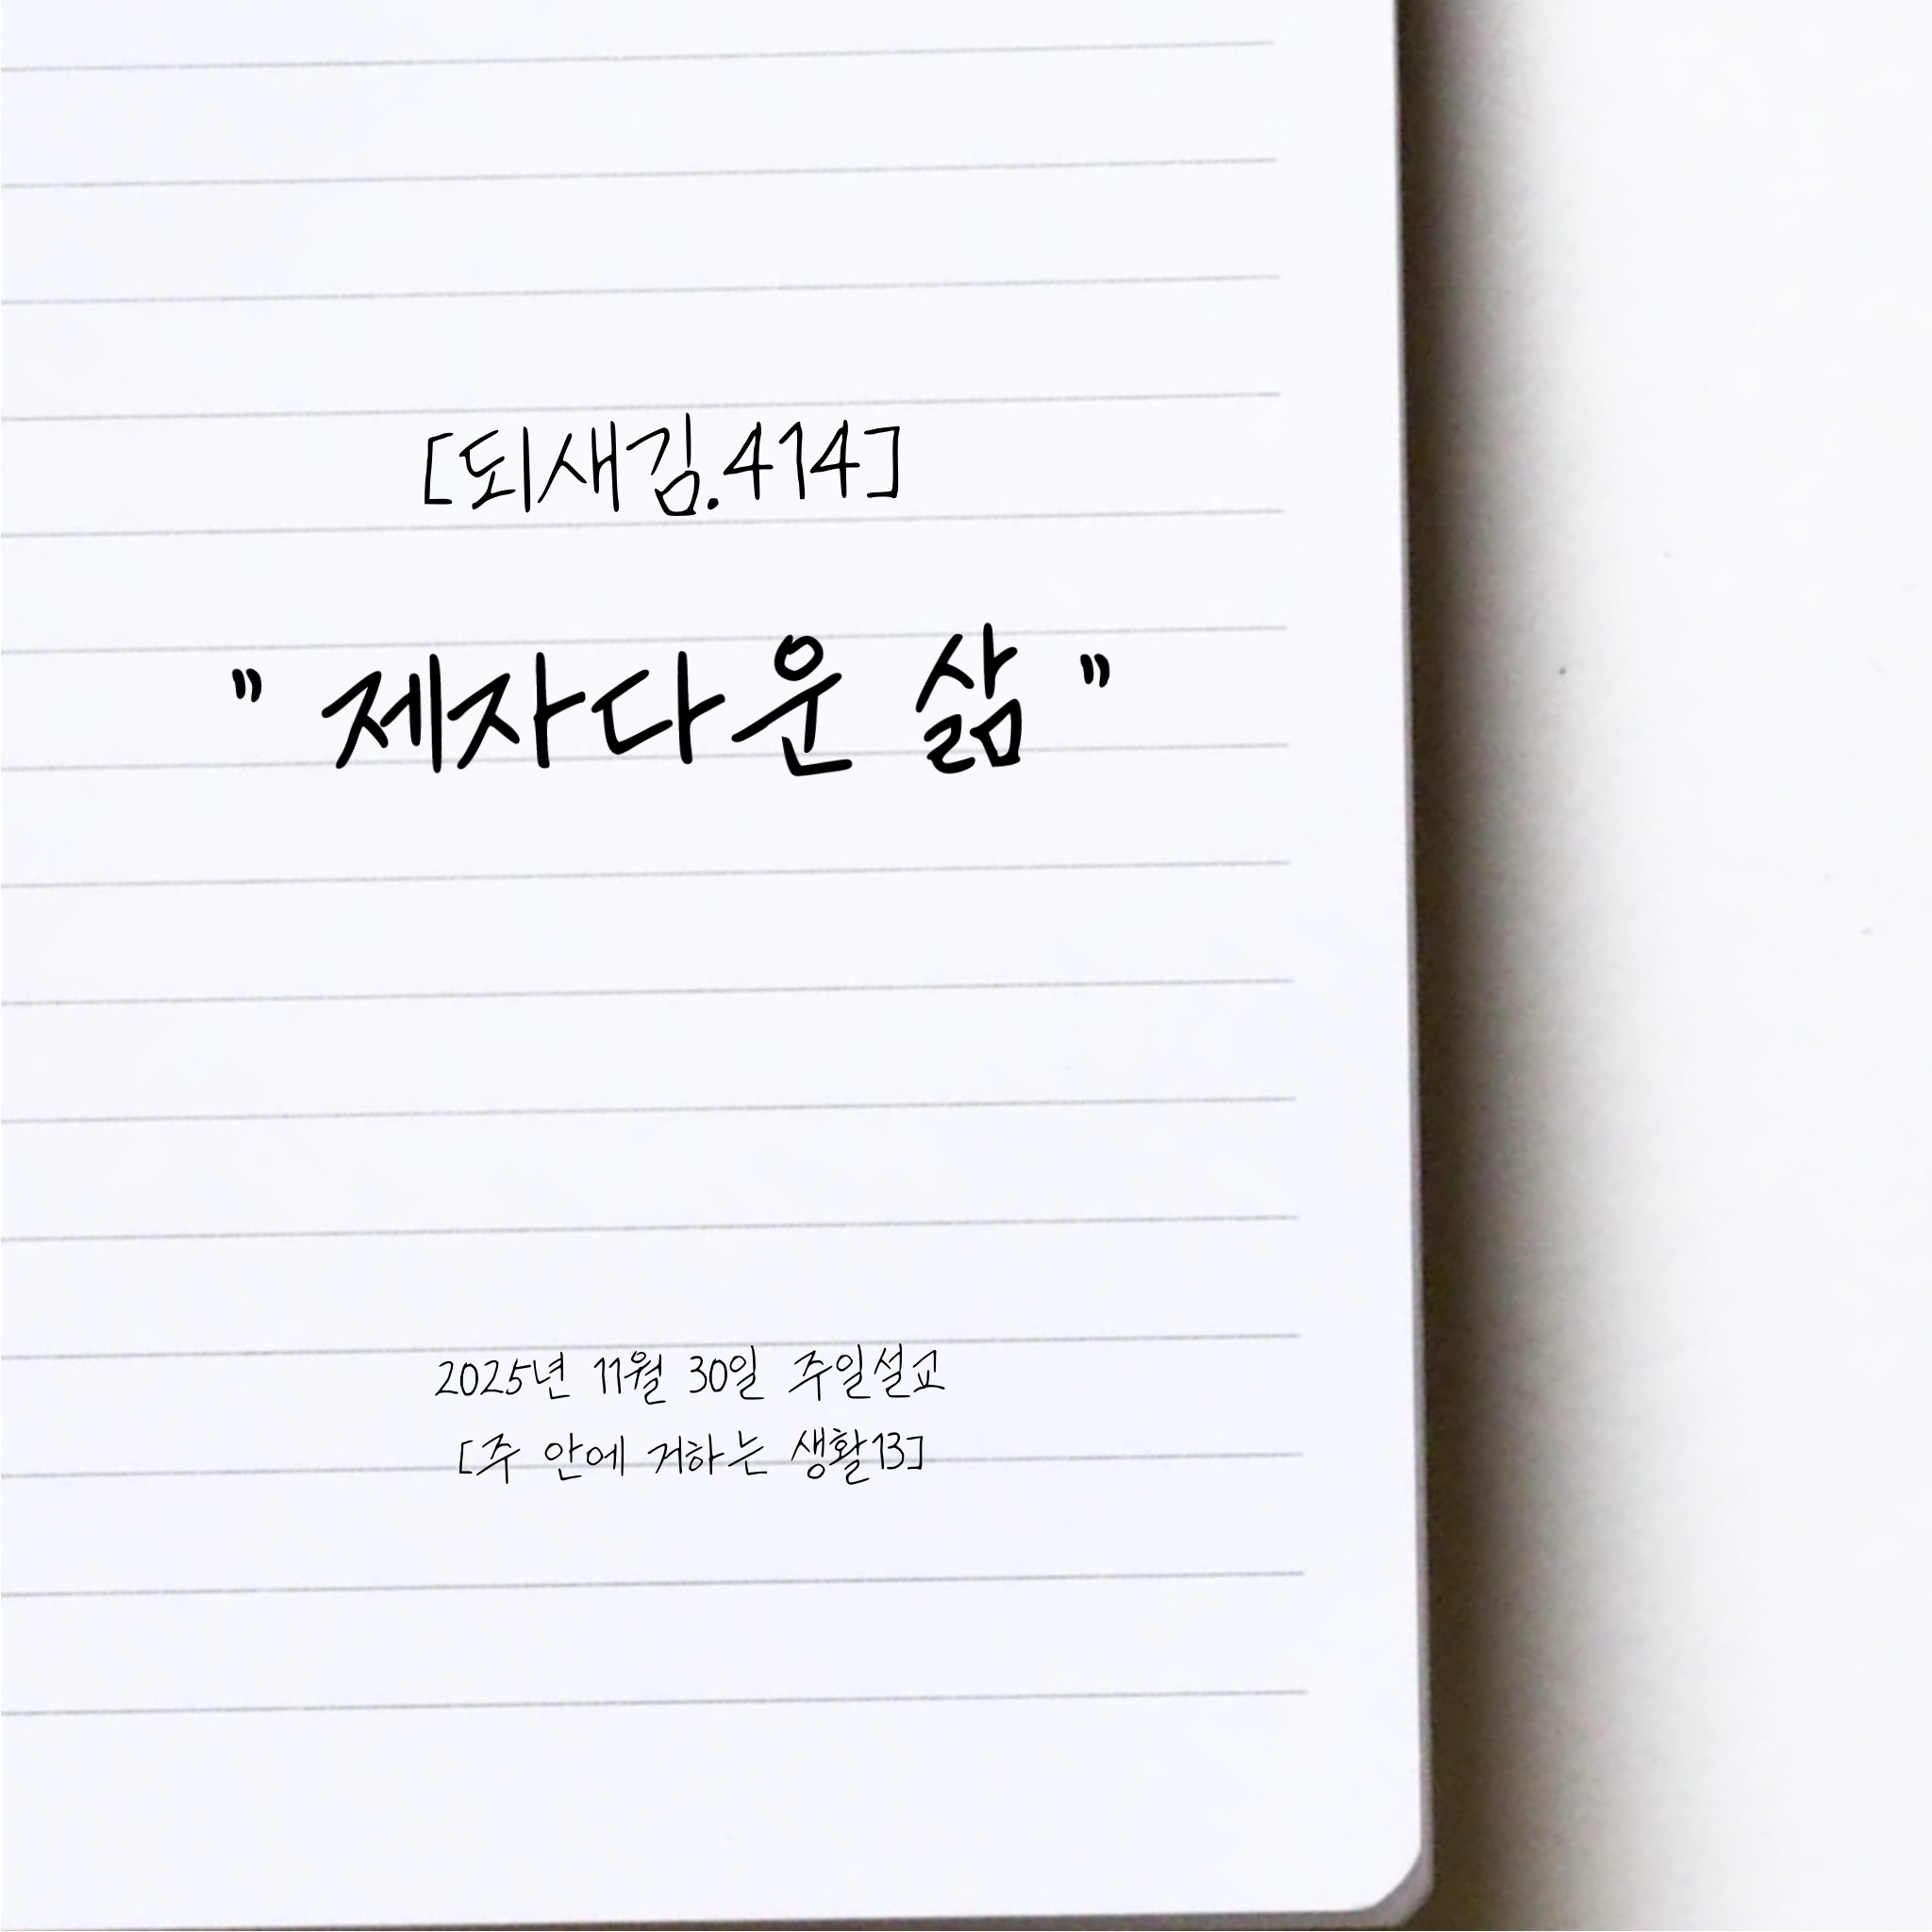 [되새김.414]
" 제자다운 삶 "
2025년 11월 30일 주일설교
[주 안에 거하는 생활13]